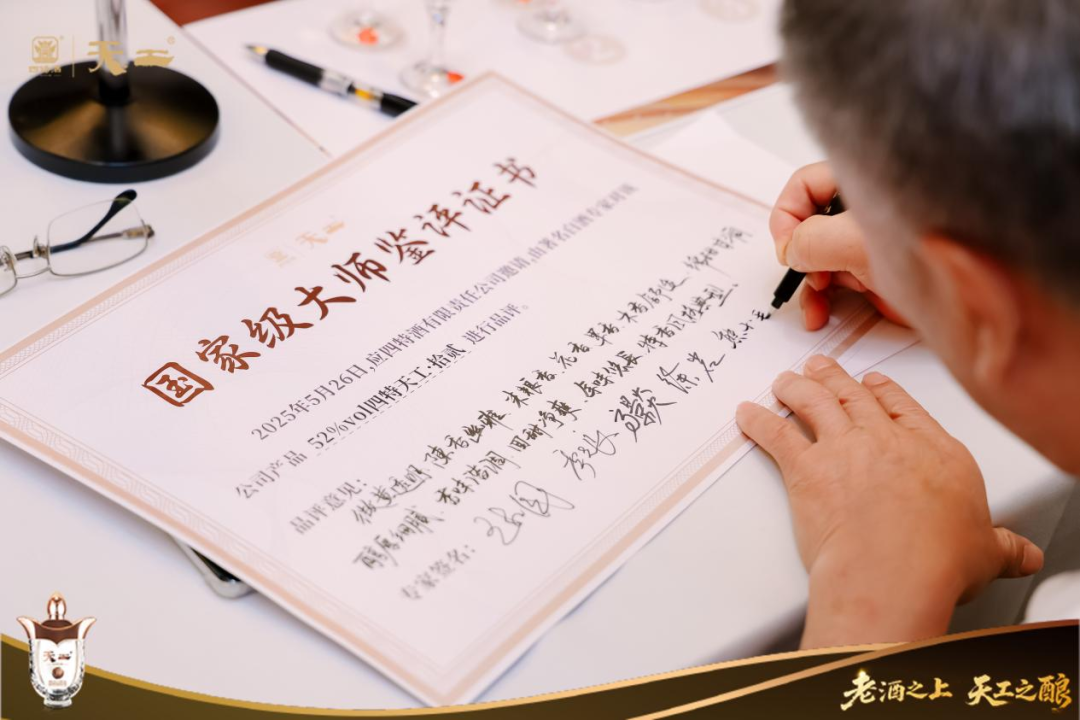 天工
国家级大师鉴评证书
天工
2025年5月26日,应四特酒有限责任公司邀请,由著名白酒专家对该
公司产品 52%vol四特天工·拾贰 进行品评。
品评意见:
微黄透明、陈香幽雅、米粮香、花香、果香、木香
醇厚细腻、香味谐调、回甜净爽、余味悠长、特香风格典型。
专家签名:
徐岩
天工
老酒之上 天工之酿